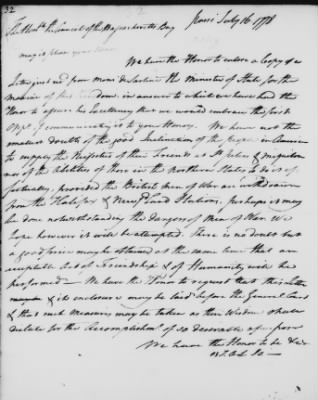 32
Passi July 16 1778
To the Honble the Council of the Massachusetts Bay
may it please your Honors
We have the Honor to enclose a Copy of a
Letter just recd from Mons de Sartine the Minister of State for the
Marine of this Kingdom, in answer to which we have had the
Honor to assure his Excellency that we would embrace the first
Oppy of communicating it to your Honors. We have not the
smallest doubt of the good Inclination of the People in
to supply the Necessities of their Friends at St Peters & Miquelon
nor of the Abilities of those in the northern States to do it
provided the British Men of War are withdrawn
from the Halifax & Newfoundland Stations, perhaps it may
be done notwithstanding the dangers of Men of War. We
hope however it will be attempted. There is no doubt but
a good price may be obtained at the same time that an
acceptable Act of Friendship & of Humanity will be
performed — We have the Honor to request that this Letter
& its enclosure may be laid before the General Court
& that such Measures may be taken as their Wisdom shall
dictate for the Accomplishmt of so desireable a purpose
We have the Honor to be &c